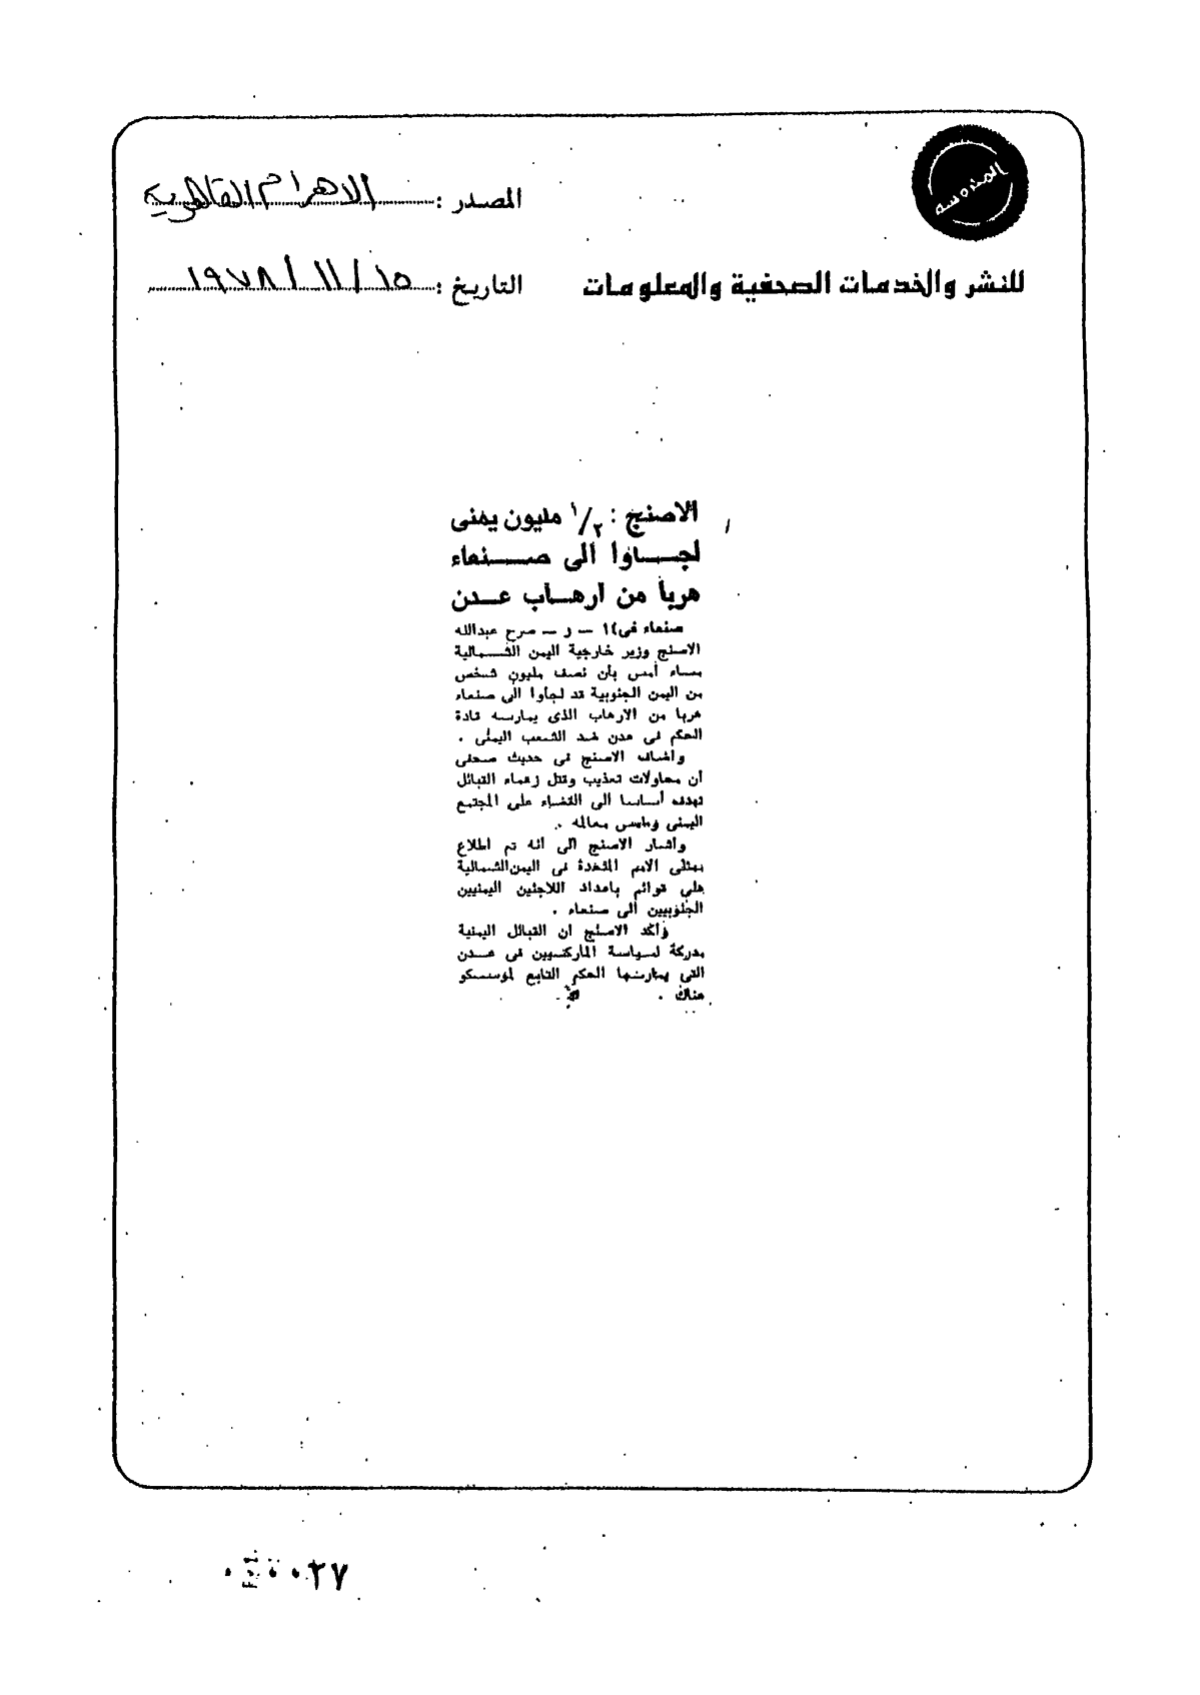 المصدر : الاهرام القاهرية
للنشر والخدمات الصحفية والمعلومات
التاريخ : ١٥ / ١١ / ١٩٧٨
الاصنج : ١/٢ مليون يمنى
لجــأوا الى صــنعاء
هربا من ارهــاب عــدن
صنعاء فى ١٤ ــ ر ــ صرح عبدالله
الاصنج وزير خارجية اليمن الشــمالية
مساء أمس بأن نصف مليون شخص
من اليمن الجنوبية قد لجأوا الى صنعاء
هربا من الارهاب الذى يمارسه قادة
الحكم فى عدن ضد الشعب اليمنى .
واضاف الاصنج فى حديث صحفى
أن محاولات تعذيب وقتل زعماء القبائل
تهدف أساسا الى القضاء على المجتمع
اليمنى وطمس معالمه .
وأشار الاصنج الى أنه تم اطلاع
ممثلى الامم المتحدة فى اليمن الشمالية
على قوائم بأعداد اللاجئين اليمنيين
الجنوبيين الى صنعاء .
وأكد الاصنج ان القبائل اليمنية
مدركة لسياسة الماركسيين فى عــدن
التى يمارسها الحكم التابع لموســكو
هناك .